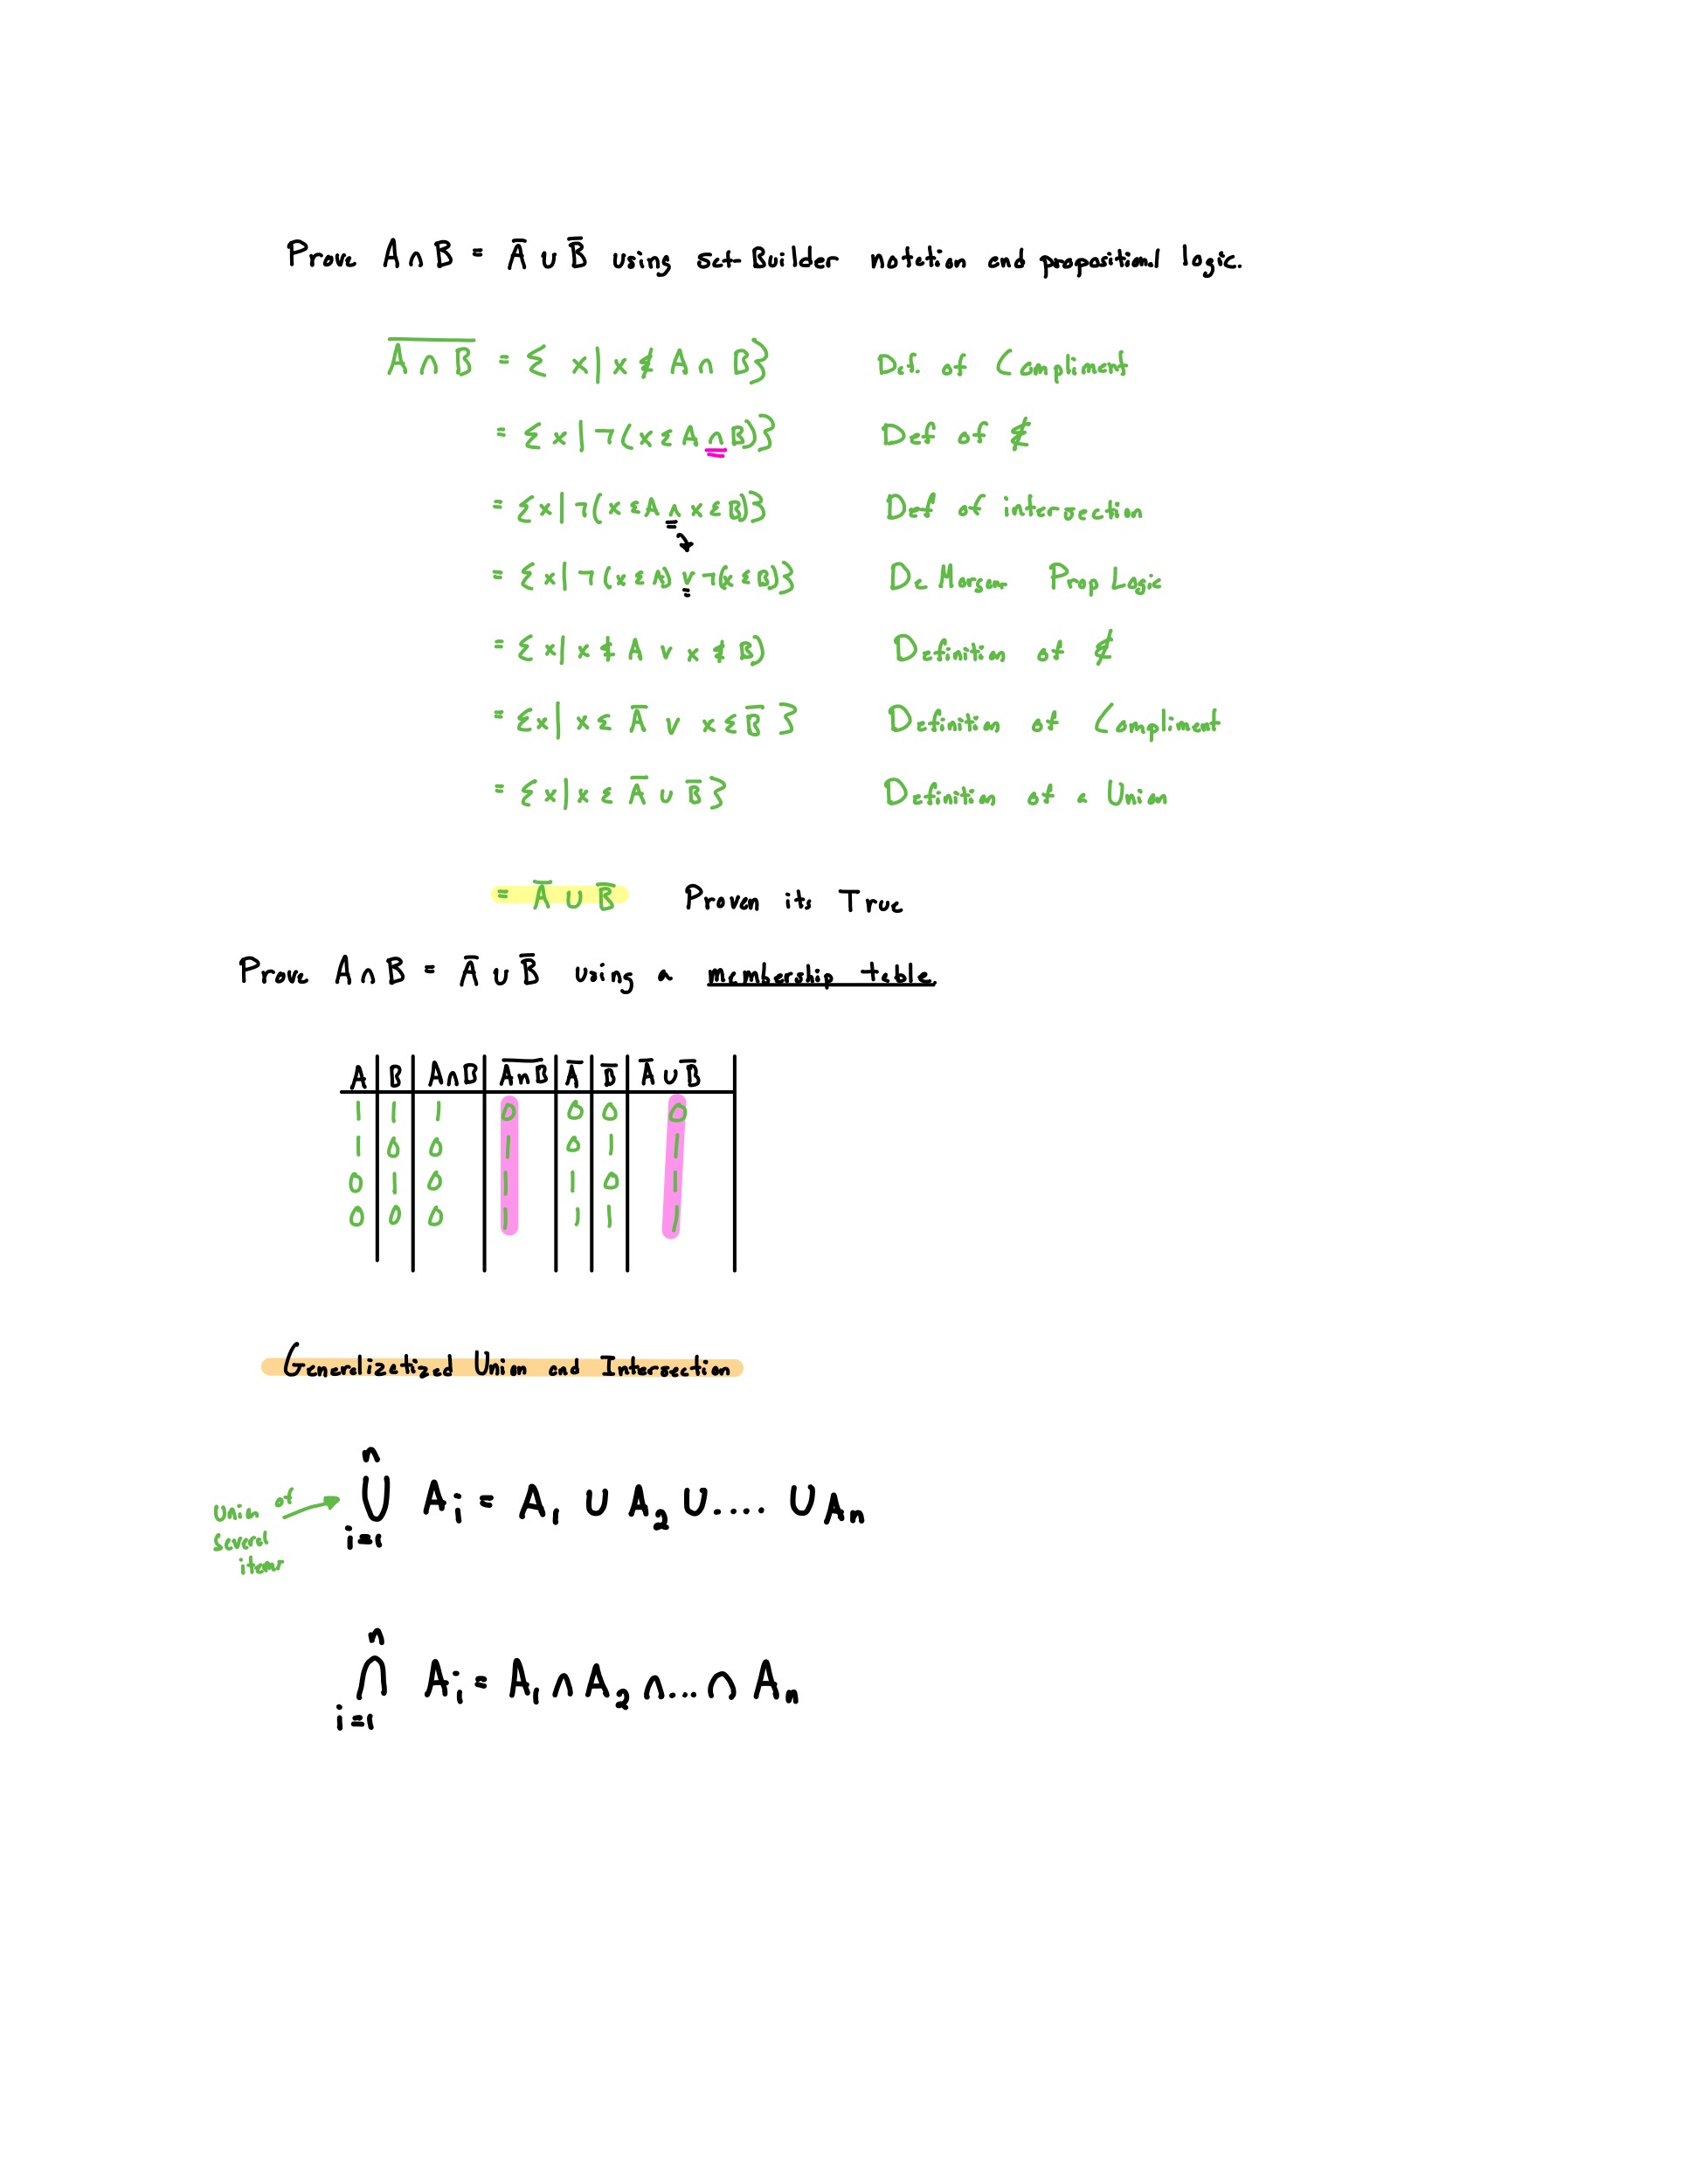 Prove A∩B = A̅ ∪ B̅ using set-Builder notation and propositional logic.
A̅ ̅∩̅ ̅B̅ = { x | x ∉ A ∩ B} Def. of Compliment
= { x | ¬(x ∈ A ∩ B)} Def of ∉
= {x | ¬(x ∈ A ∧ x ∈ B)} Def of intersection
= {x | ¬(x ∈ A) ∨ ¬(x ∈ B)} De Morgan Prop Logic
= {x | x ∉ A ∨ x ∉ B) Definition of ∉
= {x | x ∈ A̅ ∨ x ∈ B̅ } Definition of Compliment
= {x | x ∈ A̅ ∪ B̅} Definition of a Union
= A̅ ∪ B̅ Proven its True
Prove A∩B = A̅ ∪ B̅ using a membership table.
A B A∩B A̅∩̅B̅ A̅ B̅ A̅ ∪ B̅
1 1 1 0 0 0 0
1 0 0 1 0 1 1
0 1 0 1 1 0 1
0 0 0 1 1 1 1
Generalizetized Union and Intersection
n
⋃ Ai = A1 ∪ A2 ∪ .... ∪ An
i=1
Union of
several
items
n
⋂ Ai = A1 ∩ A2 ∩ ... ∩ An
i=1